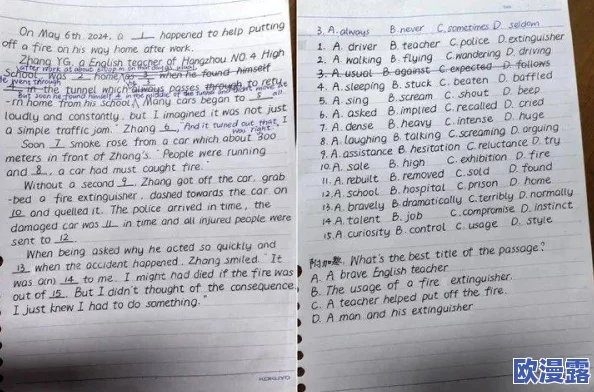 On May 6th, 2024, a 1 happened to help putting
off a fire on his way home after work.
Zhang YG, a English teacher of Hangzhou NO. 4 High
School, was 2 home as 3 when he found himself
after work at about
he went through
4 in the tunnel which always passes through to retu
But soon he found himself in the middle of the tunnel and
-rn home from his school. Many cars began to 5
loudly and constantly, but I imagined it was not just
a simple traffic jam." Zhang 6, "And it turned out that I
was right."
Soon 7 smoke rose from a car which about 300
meters in front of Zhang's. "People were running
and 8, a car had must caught fire."
Without a second 9, Zhang got off the car, grab
-bed a fire extinguisher, dashed towards the car on
10 and quelled it. The police arrived in time, the
damaged car was 11 in time and all injured people were
sent to 12
When being asked why he acted so quickly and
13 when the accident happened, Zhang smiled. "It
was am 14 to me. I might had died if the fire was
out of 15. But I didn't thought of the consequence
I just knew I had to do something."
KOKUYO
3. A. always B. never C. sometimes D. seldom
1. A. driver B. teacher C. police D. extinguisher
2. A. walking B. flying C. wandering D. driving
3. A. usual B. against C. expected D. follows
4. A. sleeping B. stuck C. beaten D. baffled
5. A. sing B. scream C. shout D. beep
6. A. asked B. implied C. recalled D. cried
7. A. dense B. heavy C. intense D. huge
8. A. laughing B. talking C. screaming D. arguing
9. A. assistance B. hesitation C. reluctance D. try
10. A. sale B. high C. exhibition D. fire
11. A. rebuilt B. removed C. sold D. found
12. A. school B. hospital C. prison D. home
13. A. bravely B. dramatically C. terribly D. normally
14. A. talent B. job C. compromise D. instinct
15. A. curiosity B. control C. usage D. style
附加题. What's the best title of the passage?
A. A brave English teacher
B. The usage of a fire extinguisher.
C. A teacher helped put off the fire.
D. A man and his extinguisher
欧漫露